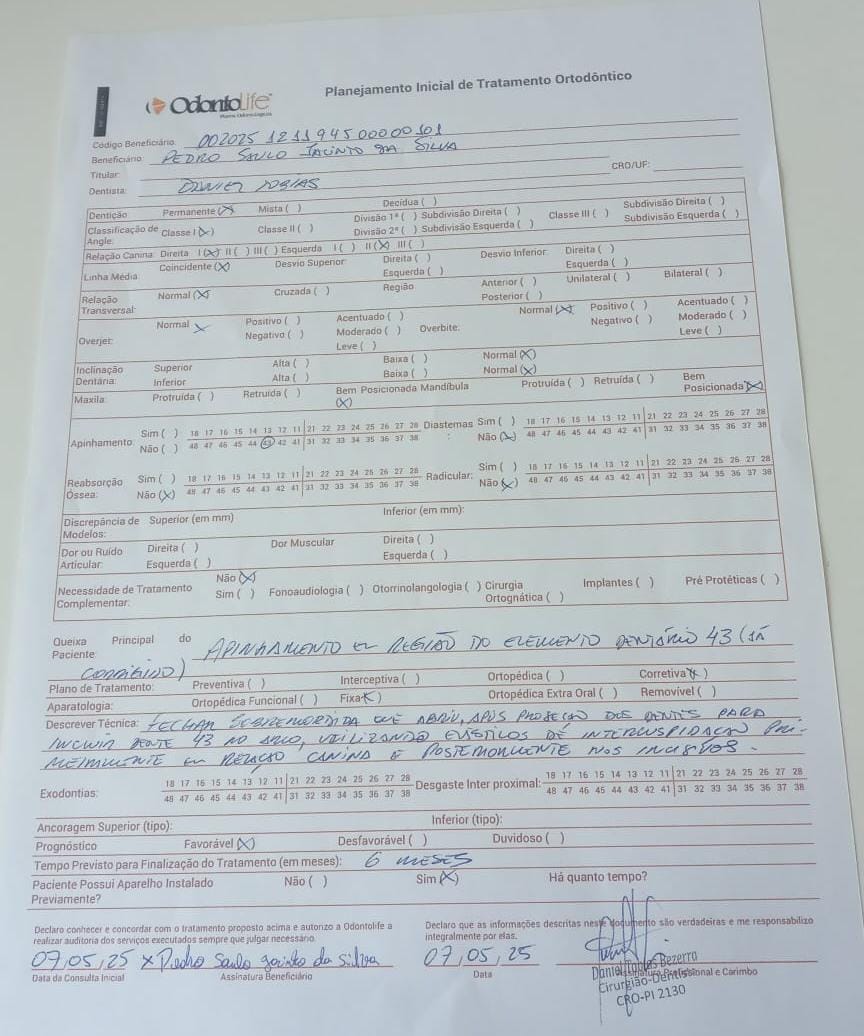 OdontoLife
Planos Odontológicos
Planejamento Inicial de Tratamento Ortodôntico
Código Beneficiário: 002025 1211945 00000101
Beneficiário: PEDRO SAULO JACINTO DA SILVA
Titular:
CRO/UF:
Dentista: DANIEL TOBIAS
Dentição Permanente (X) Mista ( ) Decídua ( )
Classificação de Angle: Classe I (X) Classe II ( ) Divisão 1ª ( ) Subdivisão Direita ( ) Classe III ( ) Subdivisão Direita ( )
Divisão 2ª ( ) Subdivisão Esquerda ( ) Subdivisão Esquerda ( )
Relação Canina: Direita I (X) II ( ) III ( ) Esquerda I ( ) II (X) III ( )
Linha Média: Coincidente (X) Desvio Superior: Direita ( ) Desvio Inferior: Direita ( )
Esquerda ( ) Esquerda ( )
Relação Transversal: Normal (X) Cruzada ( ) Região Anterior ( ) Unilateral ( ) Bilateral ( )
Posterior ( )
Overjet: Normal X Positivo ( ) Acentuado ( ) Overbite: Normal (X) Positivo ( ) Acentuado ( )
Negativo ( ) Moderado ( ) Negativo ( ) Moderado ( )
Leve ( ) Leve ( )
Inclinação Dentária: Superior Alta ( ) Baixa ( ) Normal (X)
Inferior Alta ( ) Baixa ( ) Normal (X)
Maxila: Protruída ( ) Retruída ( ) Bem Posicionada (X) Mandíbula Protruída ( ) Retruída ( ) Bem Posicionada (X)
Apinhamento: Sim ( ) 18 17 16 15 14 13 12 11 21 22 23 24 25 26 27 28 Diastemas: Sim ( ) 18 17 16 15 14 13 12 11 21 22 23 24 25 26 27 28
Não ( ) 48 47 46 45 44 43 42 41 31 32 33 34 35 36 37 38 Não (X) 48 47 46 45 44 43 42 41 31 32 33 34 35 36 37 38
Reabsorção Óssea: Sim ( ) 18 17 16 15 14 13 12 11 21 22 23 24 25 26 27 28 Radicular: Sim ( ) 18 17 16 15 14 13 12 11 21 22 23 24 25 26 27 28
Não (X) 48 47 46 45 44 43 42 41 31 32 33 34 35 36 37 38 Não (X) 48 47 46 45 44 43 42 41 31 32 33 34 35 36 37 38
Discrepância de Modelos: Superior (em mm) Inferior (em mm):
Dor ou Ruído Articular: Direita ( ) Dor Muscular Direita ( )
Esquerda ( ) Esquerda ( )
Necessidade de Tratamento Complementar: Não (X)
Sim ( ) Fonoaudiologia ( ) Otorrinolangologia ( ) Cirurgia Ortognática ( ) Implantes ( ) Pré Protéticas ( )
Queixa Principal do Paciente: APINHAMENTO EM REGIÃO DO ELEMENTO DENTÁRIO 43 (JÁ
CORRIGIDO)
Plano de Tratamento: Preventiva ( ) Interceptiva ( ) Ortopédica ( ) Corretiva (X)
Aparatologia: Ortopédica Funcional ( ) Fixa (X) Ortopédica Extra Oral ( ) Removível ( )
Descrever Técnica: FECHAR SOBREMORDIDA QUE ABRIU, APÓS PROJEÇÃO DOS DENTES PARA
INCLUIR DENTE 43 NO ARCO, UTILIZANDO ELÁSTICOS DE INTERCUSPIDAÇÃO PRI-
MEIRAMENTE EM RELAÇÃO CANINA E POSTERIORMENTE NOS INCISIVOS.
Exodontias: 18 17 16 15 14 13 12 11 21 22 23 24 25 26 27 28 Desgaste Inter proximal: 18 17 16 15 14 13 12 11 21 22 23 24 25 26 27 28
48 47 46 45 44 43 42 41 31 32 33 34 35 36 37 38 48 47 46 45 44 43 42 41 31 32 33 34 35 36 37 38
Ancoragem Superior (tipo): Inferior (tipo):
Prognóstico Favorável (X) Desfavorável ( ) Duvidoso ( )
Tempo Previsto para Finalização do Tratamento (em meses): 6 MESES
Paciente Possui Aparelho Instalado Previamente? Não ( ) Sim (X) Há quanto tempo?
Declaro conhecer e concordar com o tratamento proposto acima e autorizo a Odontolife a
realizar auditoria dos serviços executados sempre que julgar necessário.
Declaro que as informações descritas neste documento são verdadeiras e me responsabilizo
integralmente por elas.
07,05,25 x Pedro Saulo Jacinto da Silva 07,05,25
Data da Consulta Inicial Assinatura Beneficiário Data Assinatura Profissional e Carimbo
Bezerra
Cirurgião-Dentista
CRO-PI 2130